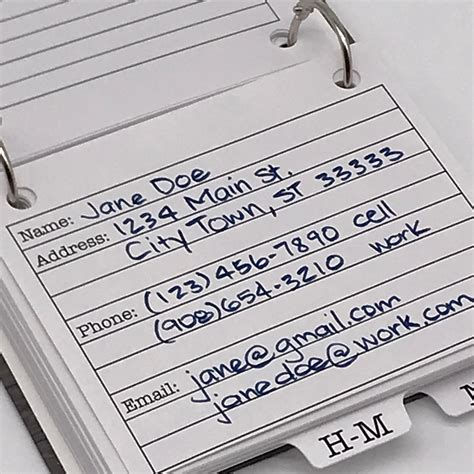 Name: Jane Doe
Address: 1234 Main St.
City Town, ST 33333
Phone: (123) 456-7890 cell
(908) 654-3210 work
Email: jane@gmail.com
janedoe@work.com
H-M